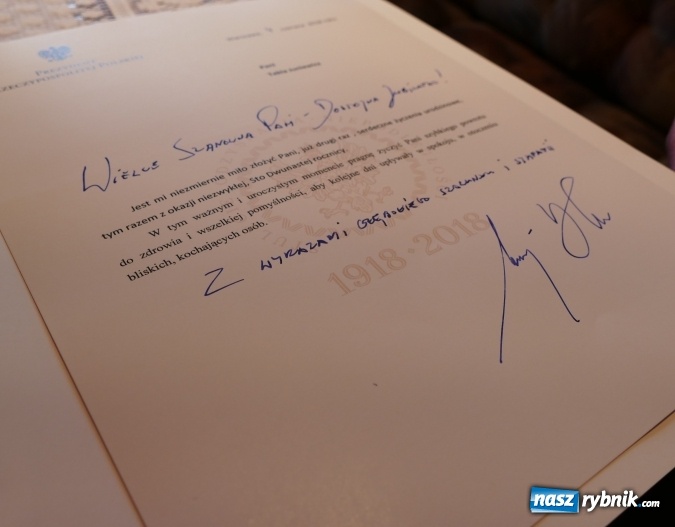 PREZYDENT
RZECZYPOSPOLITEJ POLSKIEJ
Pani
WIELCE SZANOWNA PANI - DOSTOJNA JUBILATKO!
Jest mi niezmiernie miło złożyć Pani, już drugi raz serdeczne życzenia urodzinowe,
tym razem z okazji niezwykłej, Sto Dwunastej rocznicy.
W tym ważnym i uroczystym momencie pragnę życzyć Pani szybkiego powrotu
do zdrowia i wszelkiej pomyślności, aby kolejne dni upływały w spokoju, w otoczeniu
bliskich, kochających osób.
Z WYRAZAMI GŁĘBOKIEGO SZACUNKU I
1918·2018
nasz rybnik.com